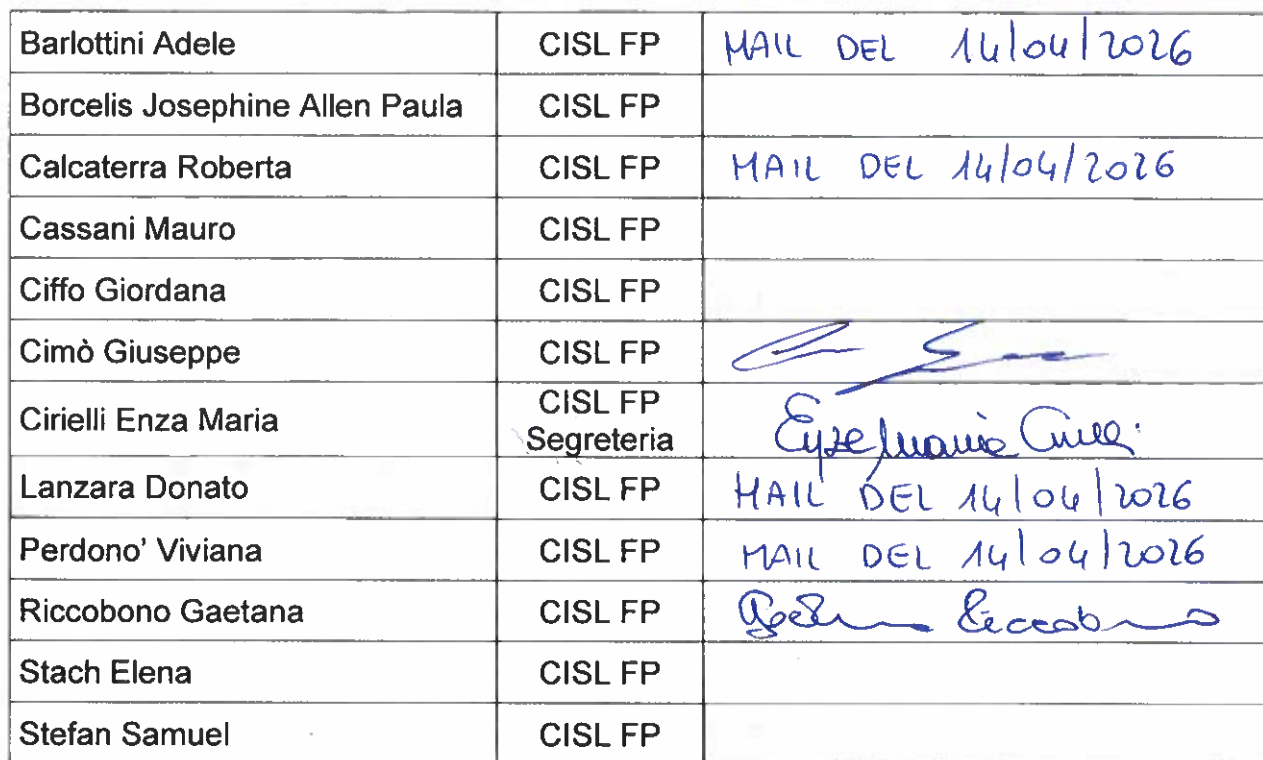 Barlottini Adele CISL FP MAIL DEL 14/04/2026
Borcelis Josephine Allen Paula CISL FP
Calcaterra Roberta CISL FP MAIL DEL 14/04/2026
Cassani Mauro CISL FP
Ciffo Giordana CISL FP
Cimò Giuseppe CISL FP
Cirielli Enza Maria CISL FP Segreteria
Lanzara Donato CISL FP MAIL DEL 14/04/2026
Perdono' Viviana CISL FP MAIL DEL 14/04/2026
Riccobono Gaetana CISL FP
Stach Elena CISL FP
Stefan Samuel CISL FP